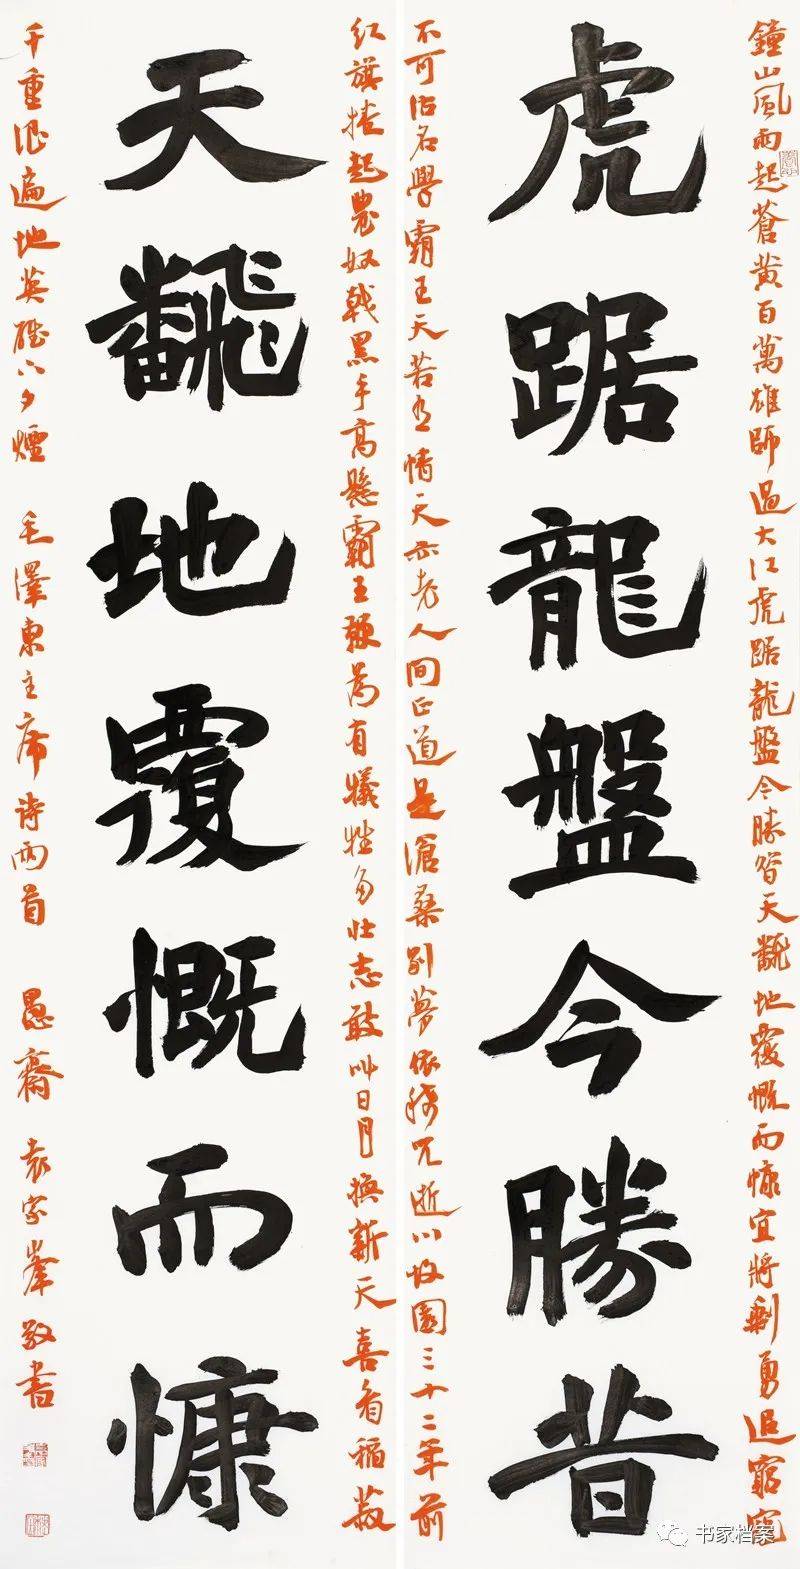 鐘山風雨起蒼黄百萬雄師過大江虎踞龍盤今勝昔天飜地覆慨而慷宜將剩勇追窮寇
虎踞龍盤今勝昔
不可沽名學霸王天若有情天亦老人間正道是滄桑别夢依稀咒逝川故園三十二年前
红旗捲起農奴戟黑手高懸霸王鞭為有犧牲多壯志敢叫日月换新天喜看稻菽
天飜地覆慨而慷
千重浪遍地英雄下夕煙 毛澤東主席詩两首 愚齋 袁家峯敬書
书家档案